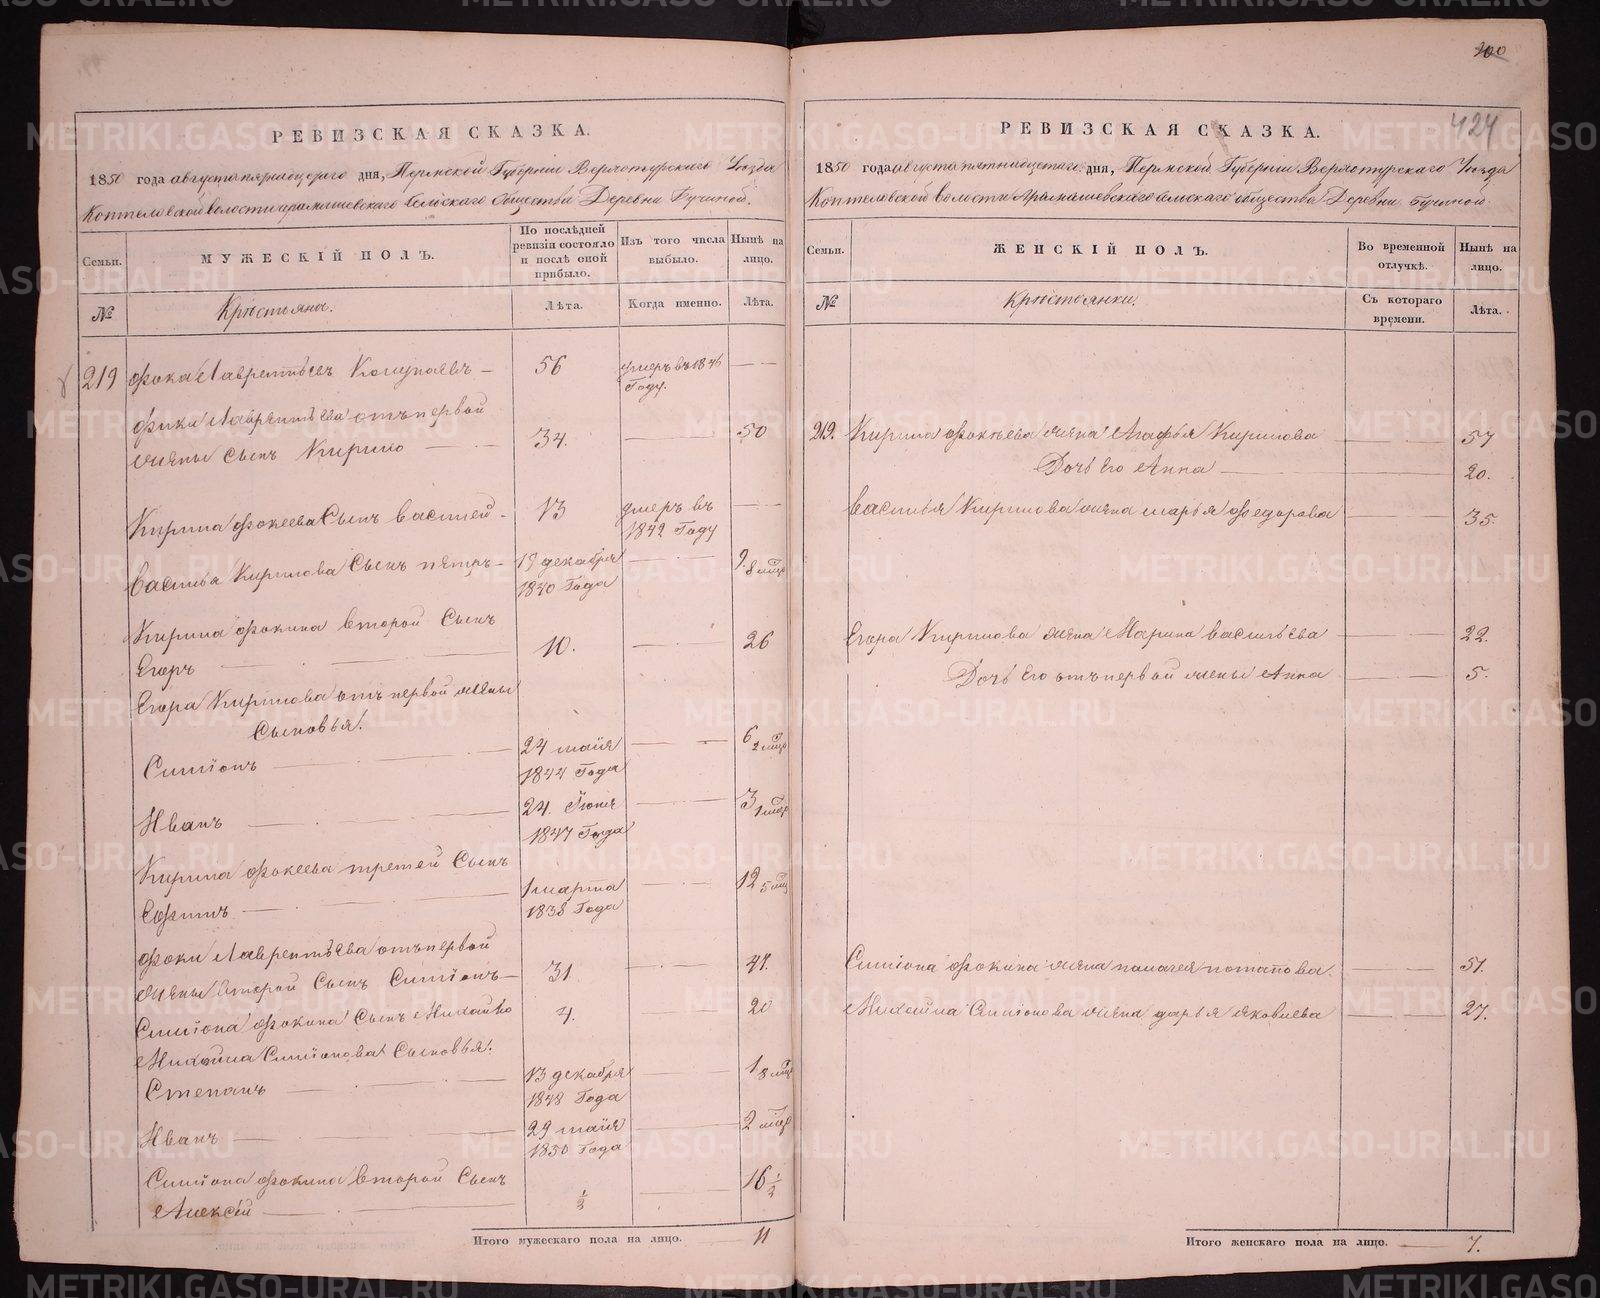 200
424
РЕВИЗСКАЯ СКАЗКА.
1850 года августа пятнадцатого дня, Пермской Губернии Верхотурского Уезда
Коптеловской волости Арамашевского Сельского Общества Деревни Бучиной.
Семьи.
МУЖЕСКІЙ ПОЛЪ.
По послѣдней ревизіи состояло и послѣ оной прибыло.
Изъ того числа выбыло.
Нынѣ на лицо.
№
Крестьяне.
Лѣта.
Когда именно.
Лѣта.
219 Фока Лаврентьевъ — 56 умеръ въ 1846 Году. —
Фоки Лаврентьева отъ первой
жены Сынъ Кирило — 34. — 50
Кирила Фокеева Сынъ Василей - 13 умеръ въ 1842 Году —
Василья Кирилова Сынъ Петръ - 19 декабря 1840 Года — 9. 8 мѣц
Кирила Фокина второй Сынъ
Егоръ — 10. — 26
Егора Кирилова отъ первой жены
Сыновья:
Симіонъ — 24 майя 1844 Года — 6 2 мѣц
Иванъ — 24. Іюня 1847 Года — 3 1 мѣц
Кирила Фокеева третей Сынъ
Ефимъ — 1 марта 1838 Года — 12 5 мѣц
Фоки Лаврентьева отъ первой
жены второй Сынъ Симіонъ — 31 — 47.
Симіона Фокина Сынъ Михайло 4. — 20
Михайла Симіонова Сыновья:
Степанъ — 13 декабря 1848 Года — 1 8 мѣц
Иванъ — 29 майя 1850 Года — 2 мѣц
Симіона Фокина второй Сынъ
Алексѣй — ½ — 16 ½
Итого мужескаго пола на лицо. — 11
РЕВИЗСКАЯ СКАЗКА.
1850 года августа пятнадцатаго дня, Пермской Губерніи Верхотурскаго Уѣзда
Коптеловской волости Арамашевскаго сельскаго общества Деревни Бучиной.
Семьи.
ЖЕНСКІЙ ПОЛЪ.
Во временной отлучкѣ.
Нынѣ на лицо.
№
Крестьянки.
Съ котораго времени.
Лѣта.
219. Кирила Фокеева жена Агафья Кирилова — — 57
Дочь его Анна — — 20.
Василья Кирилова жена Марья Федорова — — 35.
Егора Кирилова жена Марина Васильева — — 22.
Дочь его отъ первой жены Анна — — 5.
Симіона Фокина жена Пелагея Потапова. — — 51.
Михайла Симіонова жена Дарья Яковлева — — 27.
Итого женскаго пола на лицо. — 7.
METRIKI.GASO-URAL.RU